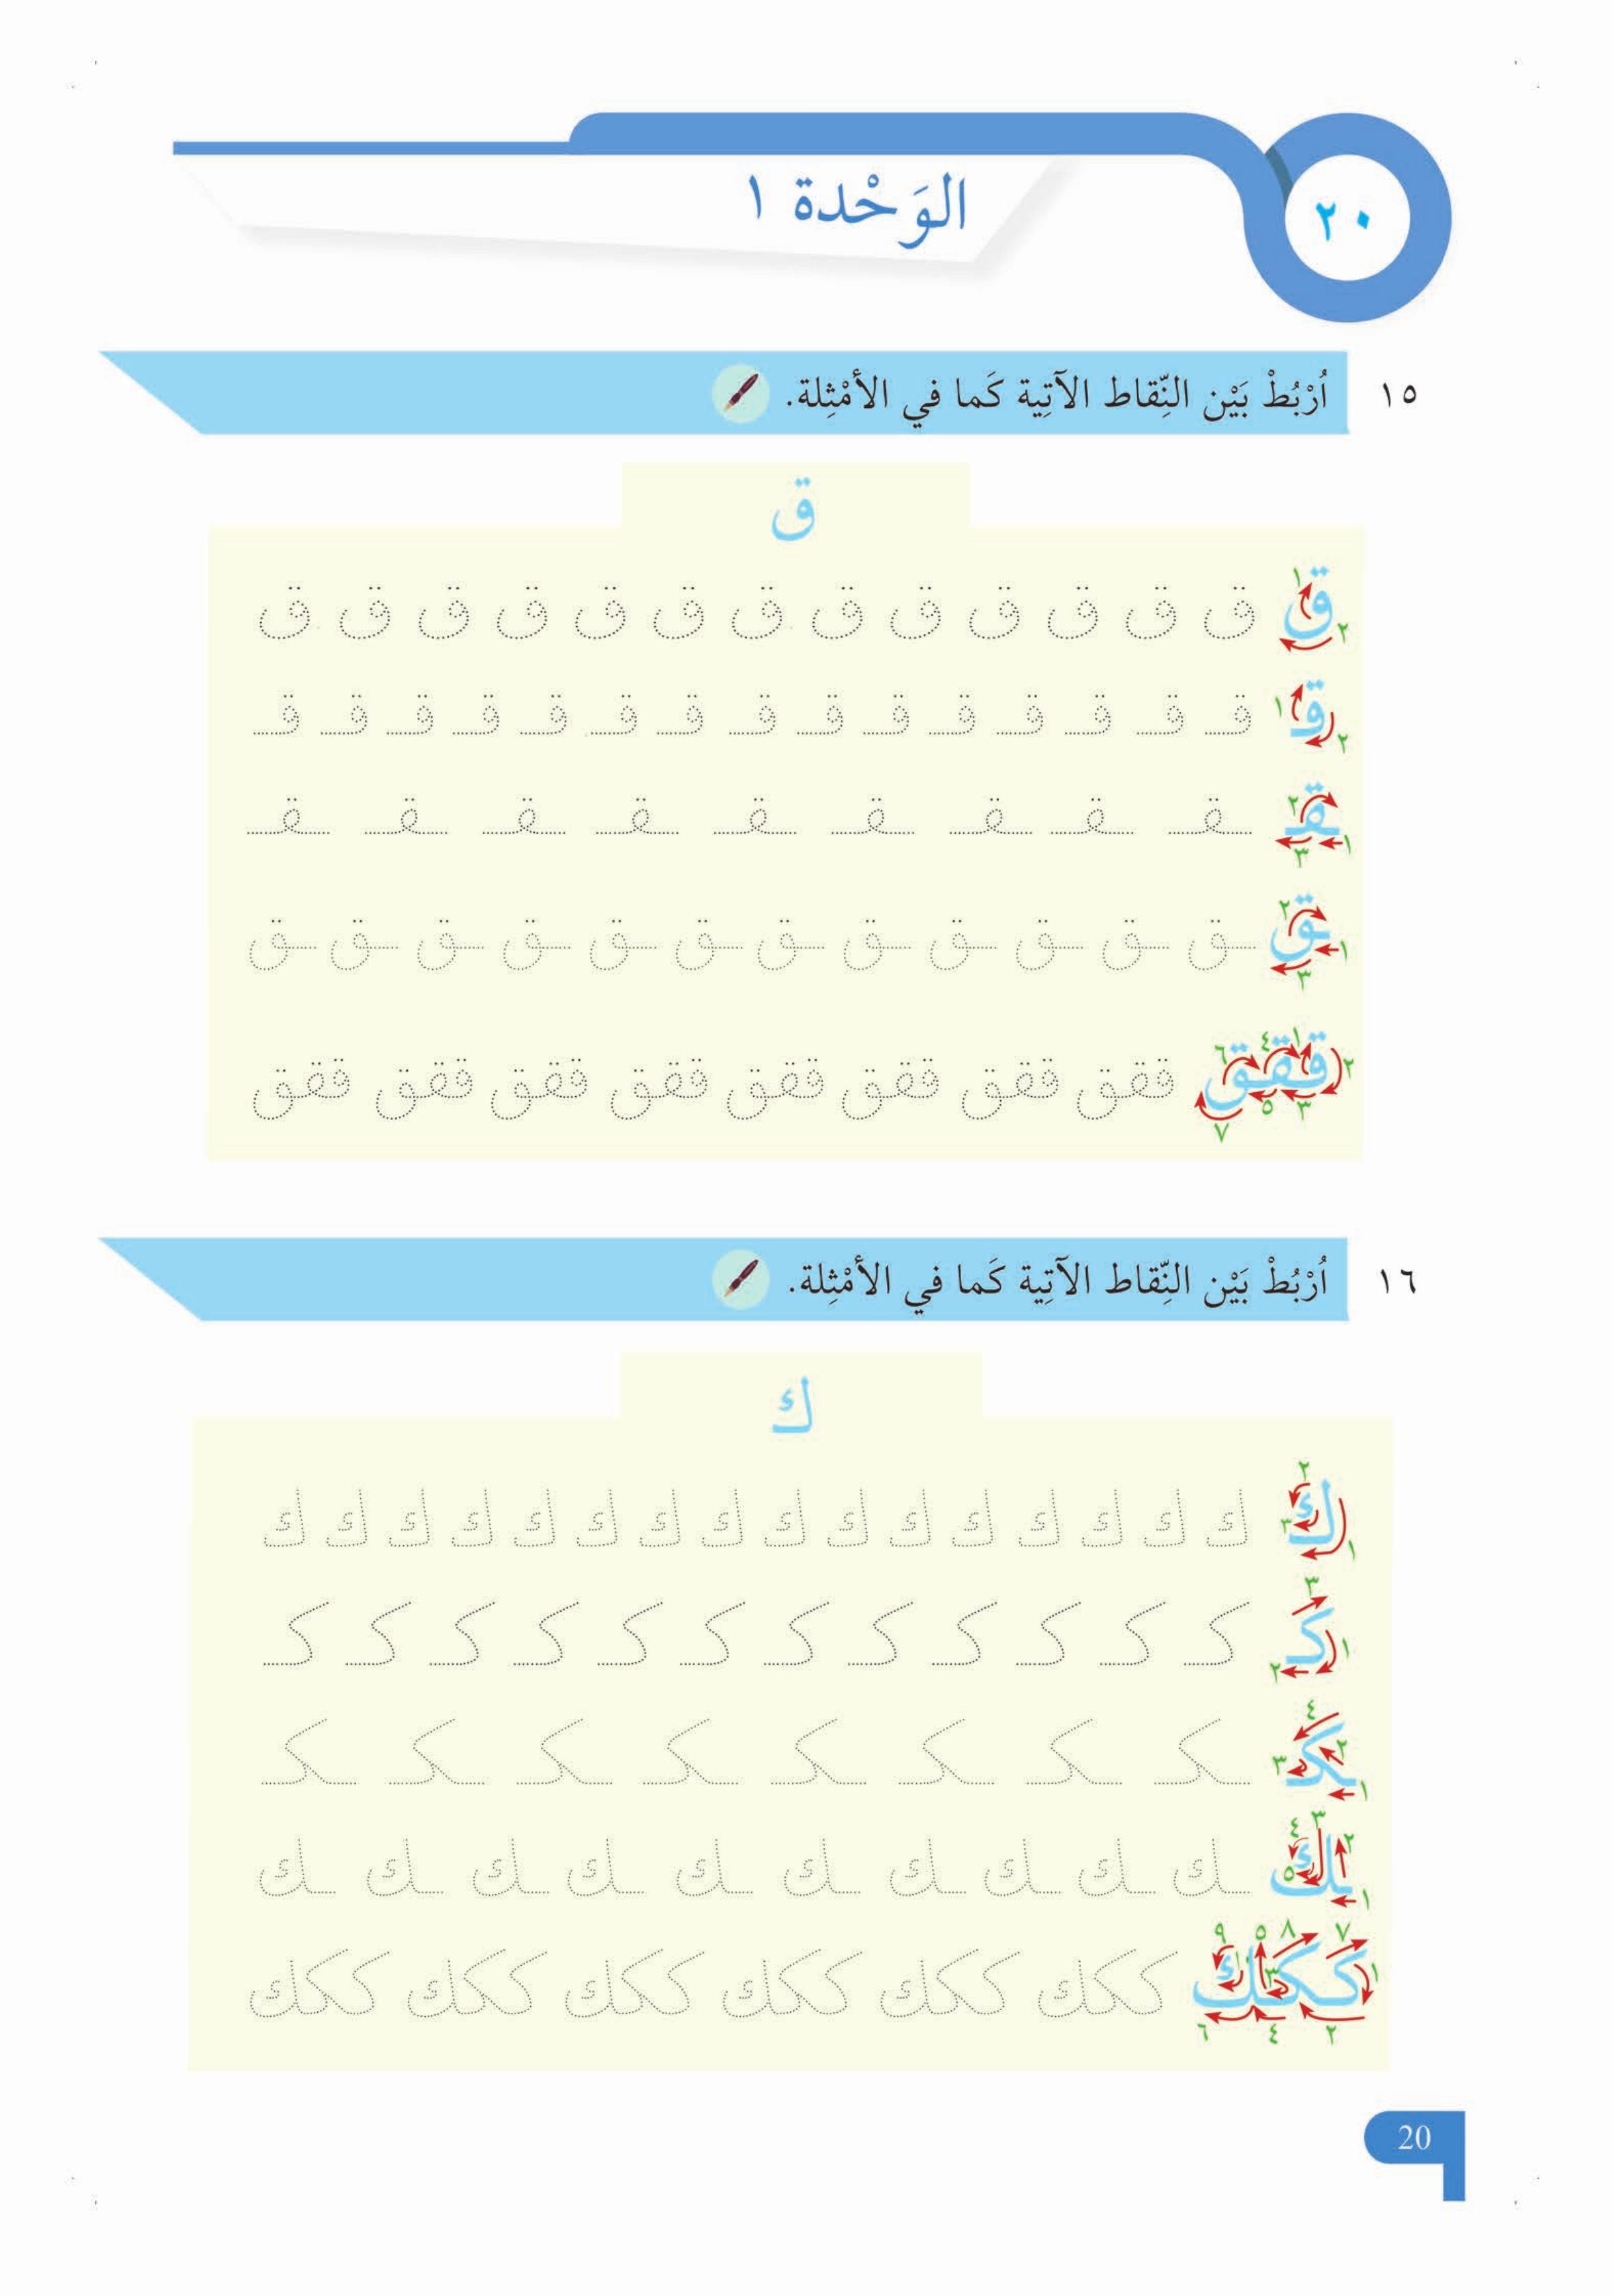 ٢٠
الوَحْدة ١
١٥ اُرْبُطْ بَيْن النِّقاط الآتِية كَما في الأمْثِلة.
ق
ق ١ ٢ ق ق ق ق ق ق ق ق ق ق ق ق ق
قـ ١ ٢ قـ قـ قـ قـ قـ قـ قـ قـ قـ قـ قـ قـ قـ قـ قـ
ـقـ ١ ٢ ٣ ـقـ ـقـ ـقـ ـقـ ـقـ ـقـ ـقـ ـقـ ـقـ
ـق ١ ٢ ٣ ـق ـق ـق ـق ـق ـق ـق ـق ـق ـق ـق ـق
ققق ١ ٢ ٣ ٤ ٥ ٦ ٧ ققق ققق ققق ققق ققق ققق ققق ققق
١٦ اُرْبُطْ بَيْن النِّقاط الآتِية كَما في الأمْثِلة.
ك
ك ١ ٢ ٣ ك ك ك ك ك ك ك ك ك ك ك ك ك ك ك ك
كـ ١ ٢ ٣ كـ كـ كـ كـ كـ كـ كـ كـ كـ كـ كـ كـ
ـكـ ١ ٢ ٣ ٤ ـكـ ـكـ ـكـ ـكـ ـكـ ـكـ ـكـ ـكـ
ـك ١ ٢ ٣ ٤ ٥ ـك ـك ـك ـك ـك ـك ـك ـك ـك ـك
ككك ١ ٢ ٣ ٤ ٥ ٦ ٧ ٨ ٩ ككك ككك ككك ككك ككك ككك
20